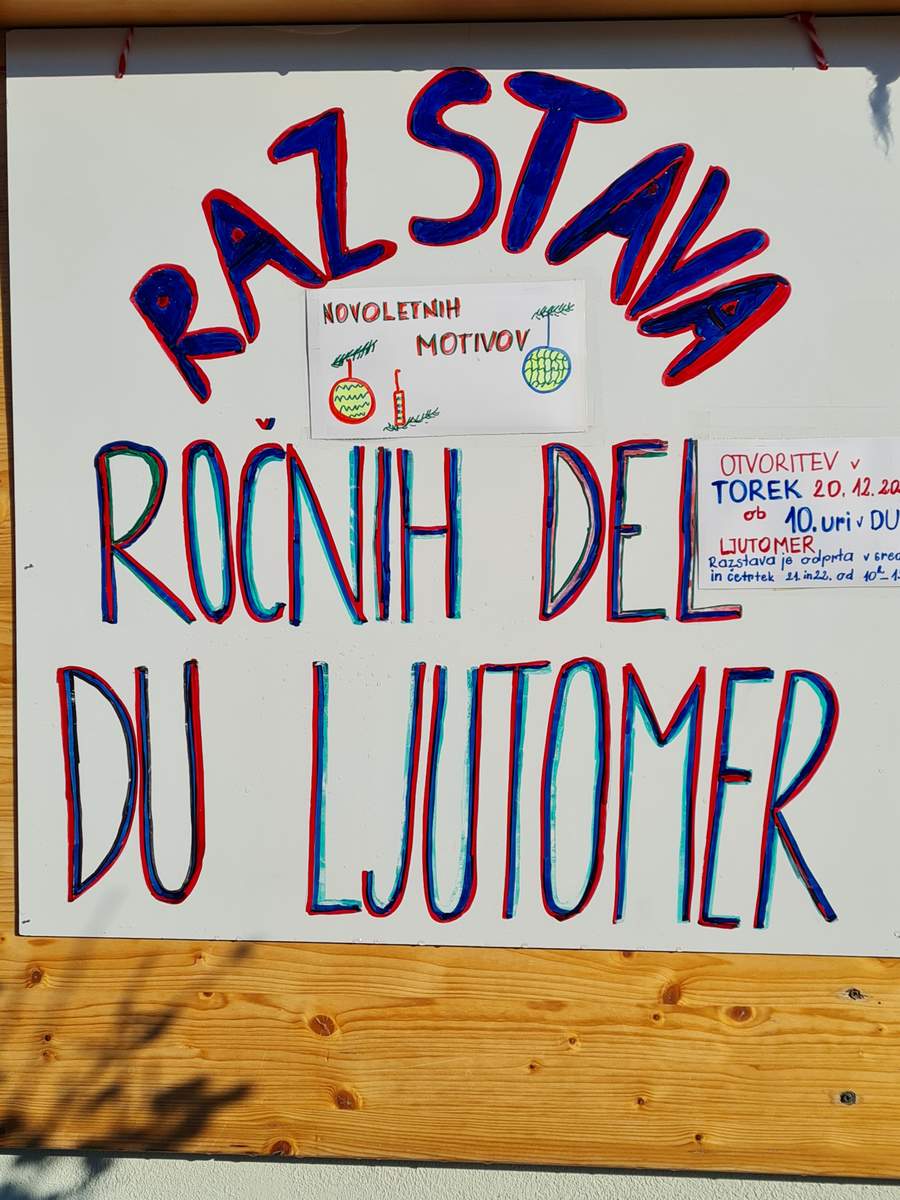 RAZSTAVA
NOVOLETNIH
MOTIVOV
ROČNIH DEL
OTVORITEV v
TOREK 20.12.20
ob 10.uri v DU
LJUTOMER
Razstava je odprta v
in četrtek 21.in22. od 10h-1
DU LJUTOMER